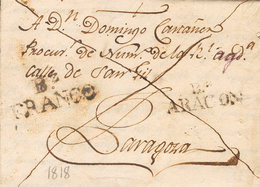 A D.n Domingo Cantañer
Procur. de Num. de la R.l aud.a
calle de San Gil
B.
FRANCO
B.
ARAGON
Zaragoza
1818